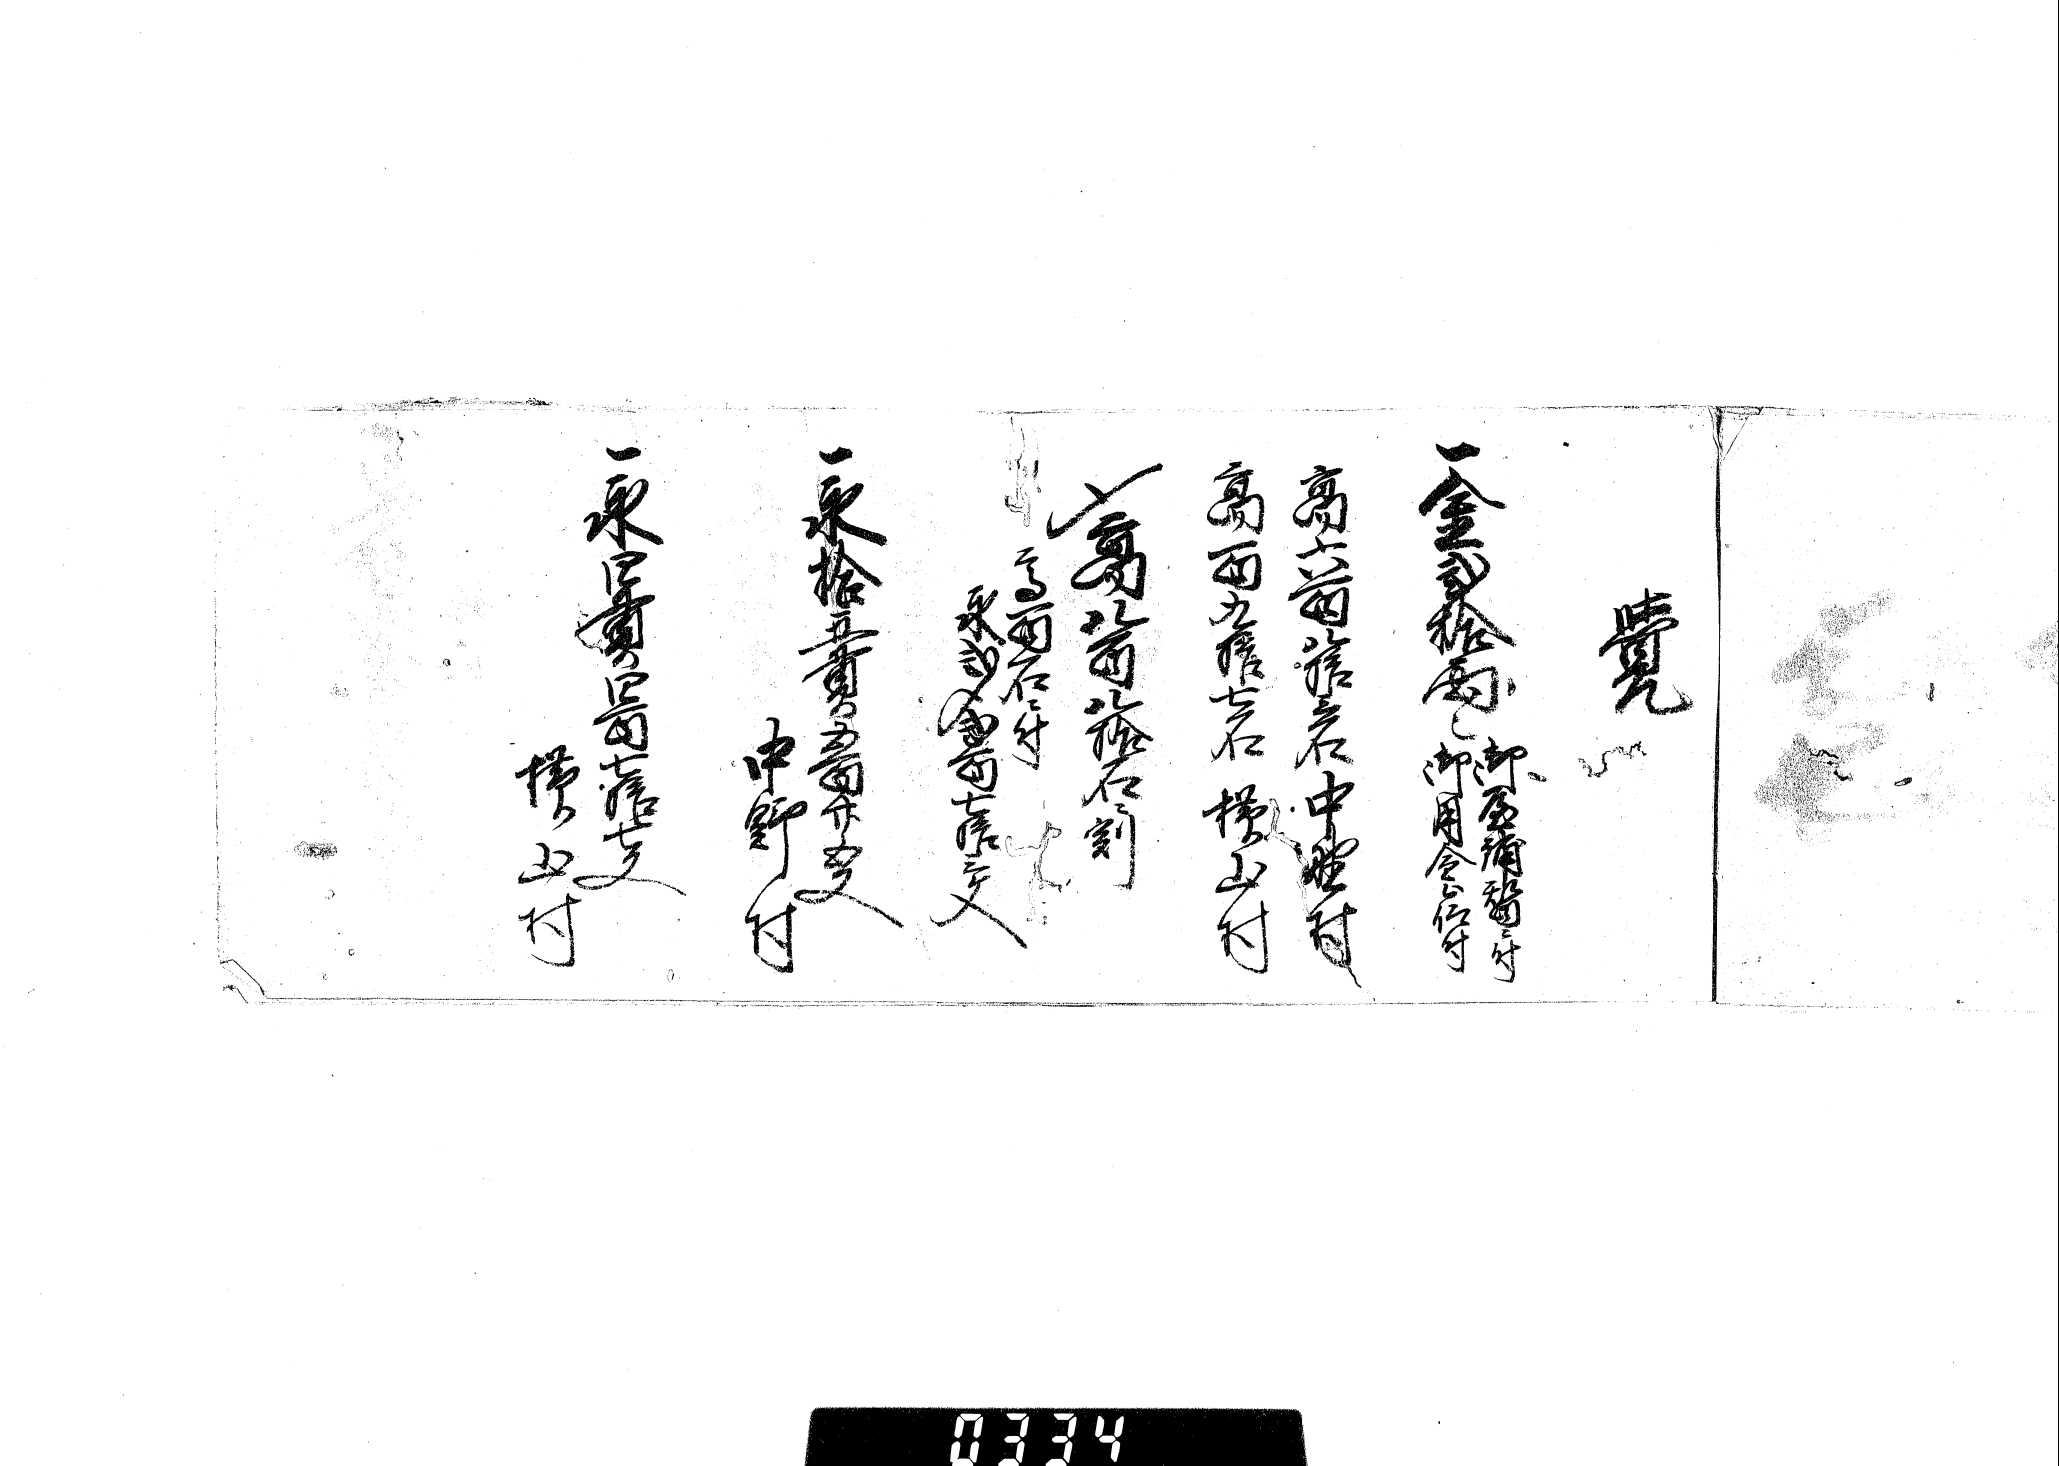 覚
一金弐拾両也
御屋舗替ニ付
御用金被仰付
高六百八拾三石 中野村
高百九拾七石 横山村
〆高八百八拾石割
高百石ニ付
永弐〆弐百七拾三文
一永拾五貫五百廿五文
中野村
一永四貫四百七拾七文
横山村
0334